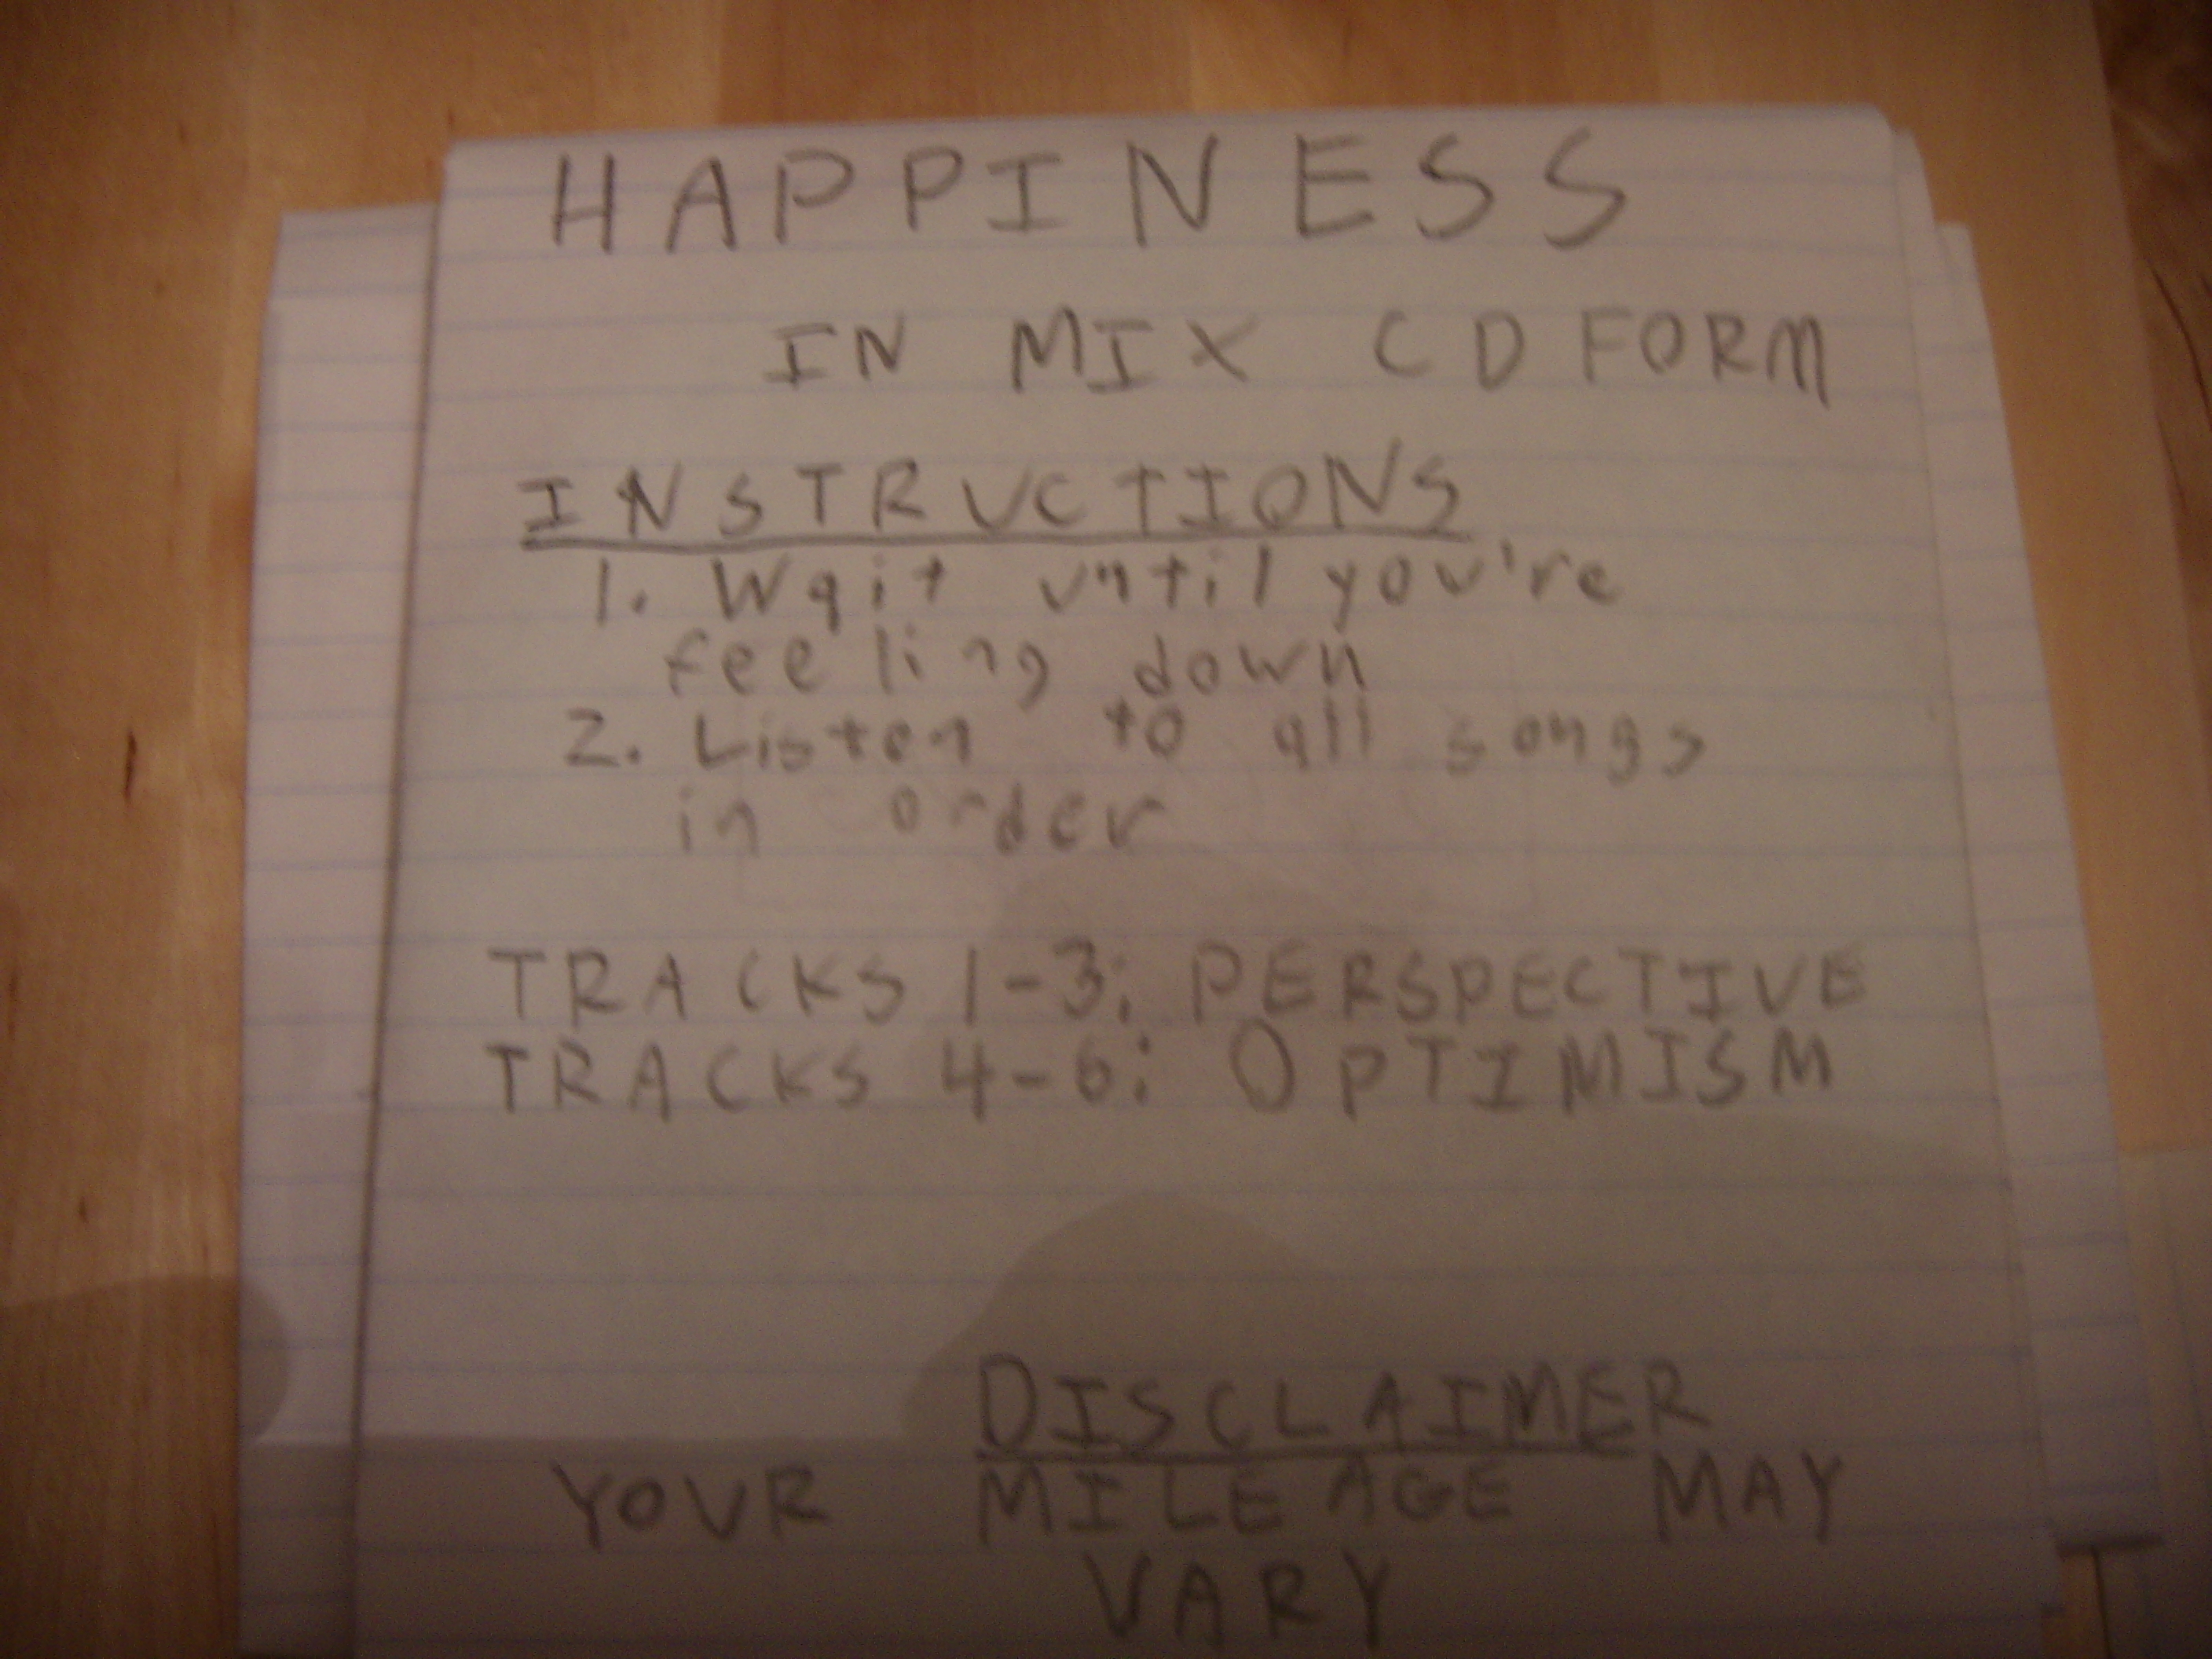 HAPPINESS
IN MIX CD FORM
INSTRUCTIONS
1. Wait until you're
feeling down
2. Listen to all songs
in order
TRACKS 1-3: PERSPECTIVE
TRACKS 4-6: OPTIMISM
DISCLAIMER
YOUR MILEAGE MAY
VARY